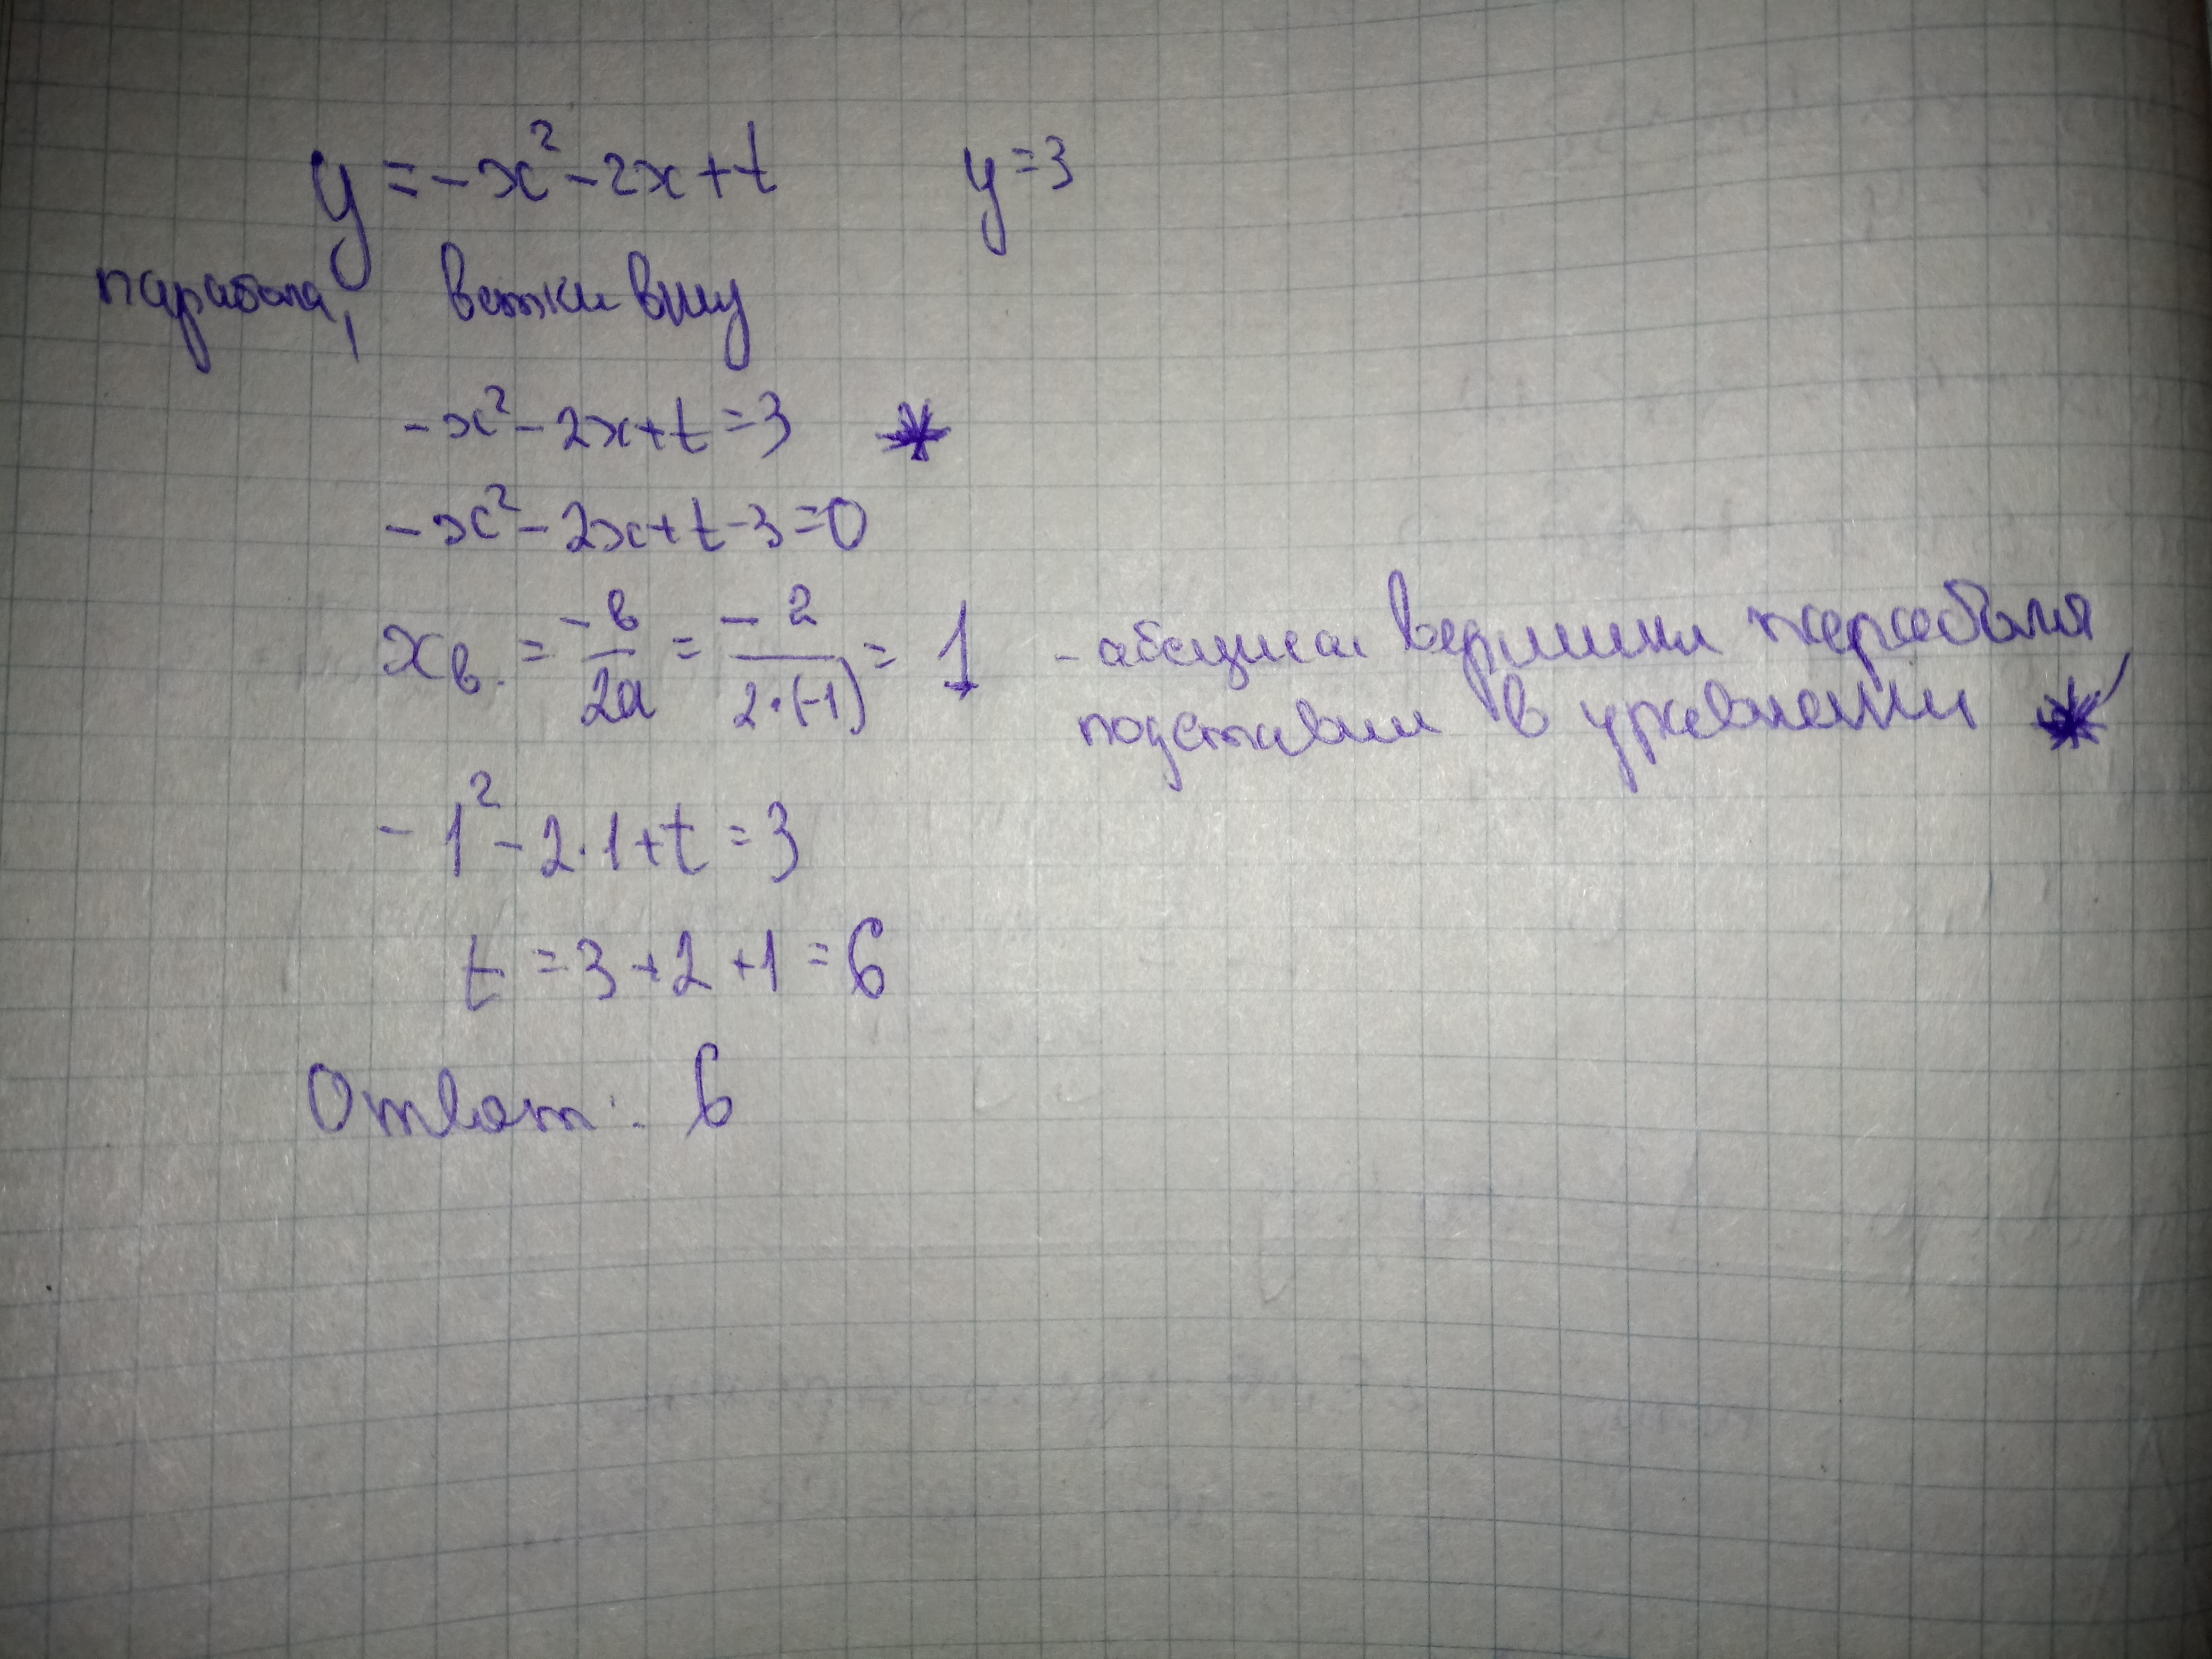 y = -x² - 2x + t    y = 3
парабола, ветки вниз
-x² - 2x + t = 3 *
-x² - 2x + t - 3 = 0
xв. = -в/2a = -2/2·(-1) = 1 - абсцисса вершины параболы
подставим в уравнении *
-1² - 2·1 + t = 3
t = 3 + 2 + 1 = 6
Ответ: 6